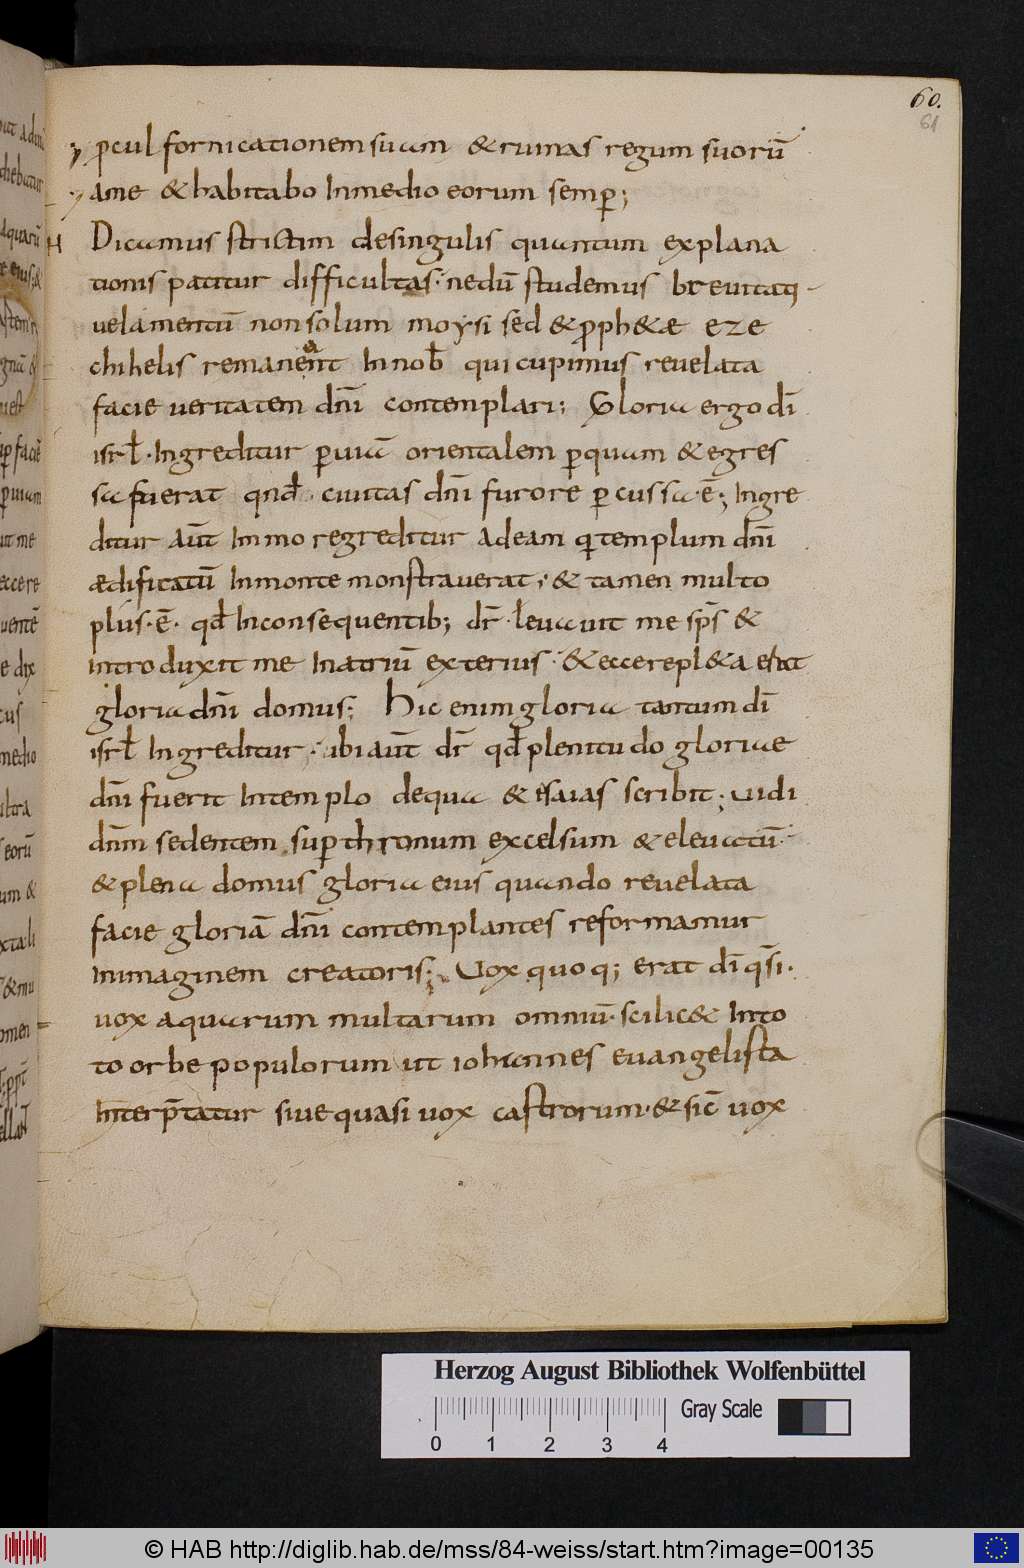 60.
61
p̱cul fornicationem suam & ruinas regum suorū
ame & habitabo Inmedio eorum semp̱;
H Dicamus strictim desingulis quantum explana
tionis patitur difficultas· nedū studemus breuitati
velamentū non solum moysi sed & p̱ph&ae eze
chihelis remaneant In nob̄ qui cupimus reuelata
facie ueritatem dn̄i contemplari; Gloria ergo dī
isrl̄· Ingreditur p̱uiā orientalem p̱quam & egres
sa fuerat qn̄d ciuitas dn̄i furore p̱cussa·ē·; Ingre
ditur aūt Immo regreditur adeam q templum dn̄i
ædificatū Inmonte monstrauerat; & tamen multo
plus·ē· qd̄ Inconsequentib; dr̄· leuauit me sp̄s &
introduxit me Inatriū exterius· & ecce repl&a erat
gloria dn̄i domus; Hic enim gloria tantum dī
isrl̄ Ingreditur· ubi aūt dr̄ qd̄ plenitudo gloriae
dn̄i fuerit Intemplo dequa & esaias scribit; uidi
dn̄m sedentem sup̱ thronum excelsum & eleuatū·
& plena domus gloria eius quando reuelata
facie gloriā dn̄i contemplantes reformamur
Inimaginem creatoris; Uox quoq; erat dī q̄si·
uox aquarum multarum omniū· scilic& Into
to orbe populorum ut iohannes euangelista
Interp̄tatur siue quasi uox castrorum· & sic̄ uox
Herzog August Bibliothek Wolfenbüttel
Gray Scale
0 1 2 3 4
© HAB http://diglib.hab.de/mss/84-weiss/start.htm?image=00135